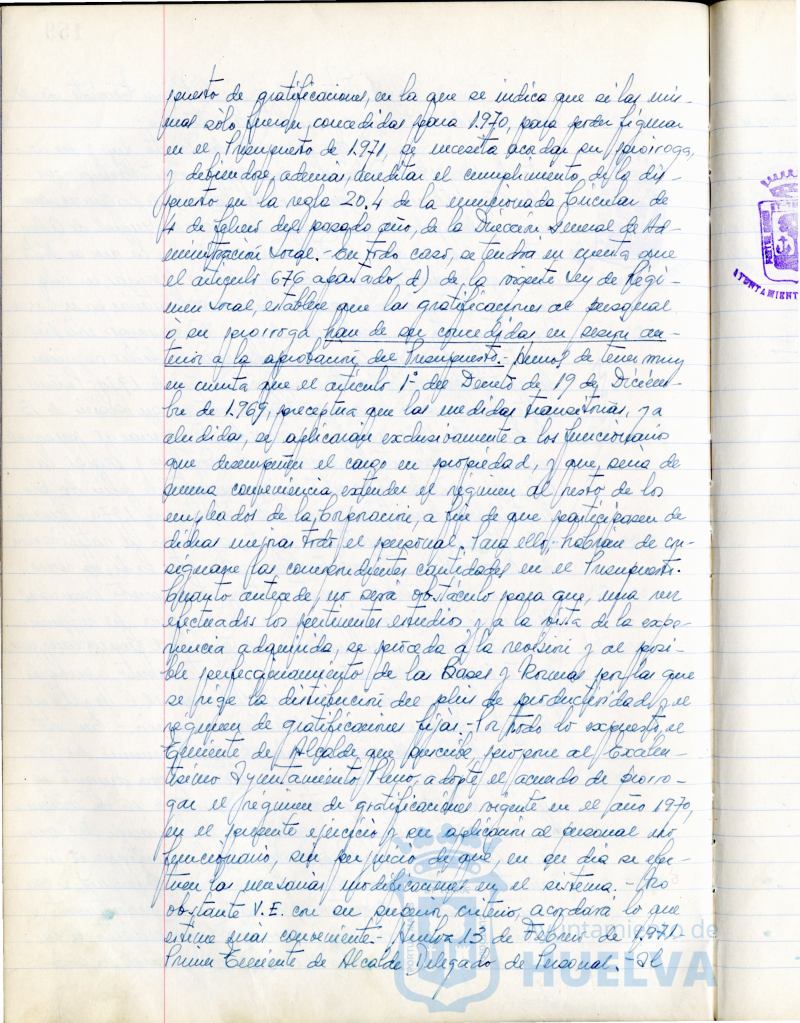 puesto de gratificaciones, en la que se indica que si las mis-
mas sólo fueron concedidas para 1.970, para poder figurar
en el Presupuesto de 1.971, se necesita acordar su prórroga,
y debiéndose, además, acreditar el cumplimiento de lo dis-
puesto en la regla 20.4 de la mencionada Circular de
4 de febrero del pasado año, de la Dirección General de Ad-
ministración Local.- En todo caso, se tendrá en cuenta que
el artículo 676 apartado d) de la vigente Ley de Régi-
men Local, establece que las gratificaciones al personal
o su prórroga han de ser concedidas en sesión an-
terior a la aprobación del Presupuesto.- Hemos de tener muy
en cuenta que el artículo 1º del Decreto de 19 de Diciem-
bre de 1.969, preceptua que las medidas transitorias, ya
aludidas, se aplicarían exclusivamente a los funcionarios
que desempeñen el cargo en propiedad, y que, sería de
suma conveniencia, extender el régimen al resto de los
empleados de la Corporación, a fin de que participasen de
dichas mejoras todo el personal. Para ello, habrán de con-
signarse las correspondientes cantidades en el Presupuesto.
Cuanto antecede, no será obstáculo para que, una vez
efectuados los pertinentes estudios y a la vista de la expe-
riencia adquirida, se proceda a la revisión y al posi-
ble perfeccionamiento de las Bases y Normas por las que
se rige la distribución del plus de productividad y el
régimen de gratificaciones fijas.- Por todo lo expuesto, el
Teniente de Alcalde que suscribe, propone al Excelen-
tísimo Ayuntamiento Pleno, adopte el acuerdo de prorro-
gar el régimen de gratificaciones vigente en el año 1970,
en el presente ejercicio y su aplicación al personal no
funcionario, sin perjuicio de que, en su día se efec-
tuen las necesarias modificaciones en el sistema.- No
obstante V.E. con su superior criterio, acordará lo que
estime más conveniente.- Huelva 13 de Febrero de 1.971.
Primer Teniente de Alcalde Delegado de Personal.- El
Ayuntamiento de
HUELVA
AYUNTAMIENT